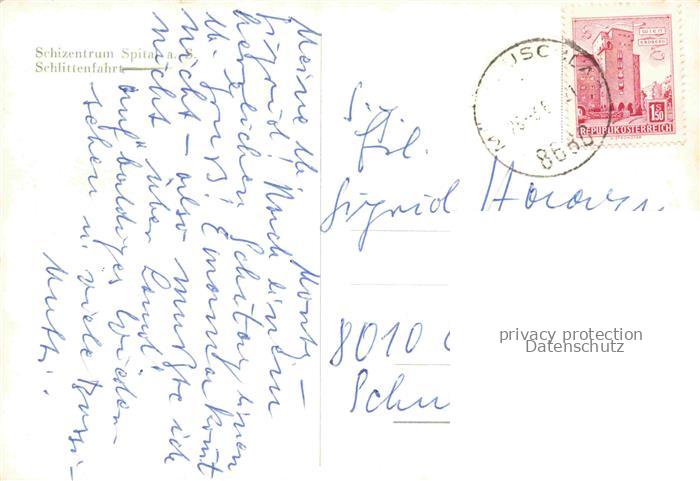 Schizentrum Spital a. S.
Schlittenfahrt
Montg –
Meine lb.
Sigrid! Nach einem
herrlichen Schitag einen
lb. Gruß! Emanuela kommt
nicht – also mußte ich
nicht über Land!
"auf baldiges Wieder-
sehen u. viele Bussi –
Mutti.
Frl.
Sigrid
8010
Schu
8680
WIEN
ERDBERG
S
1.50
REPUBLIK ÖSTERREICH
privacy protection
Datenschutz